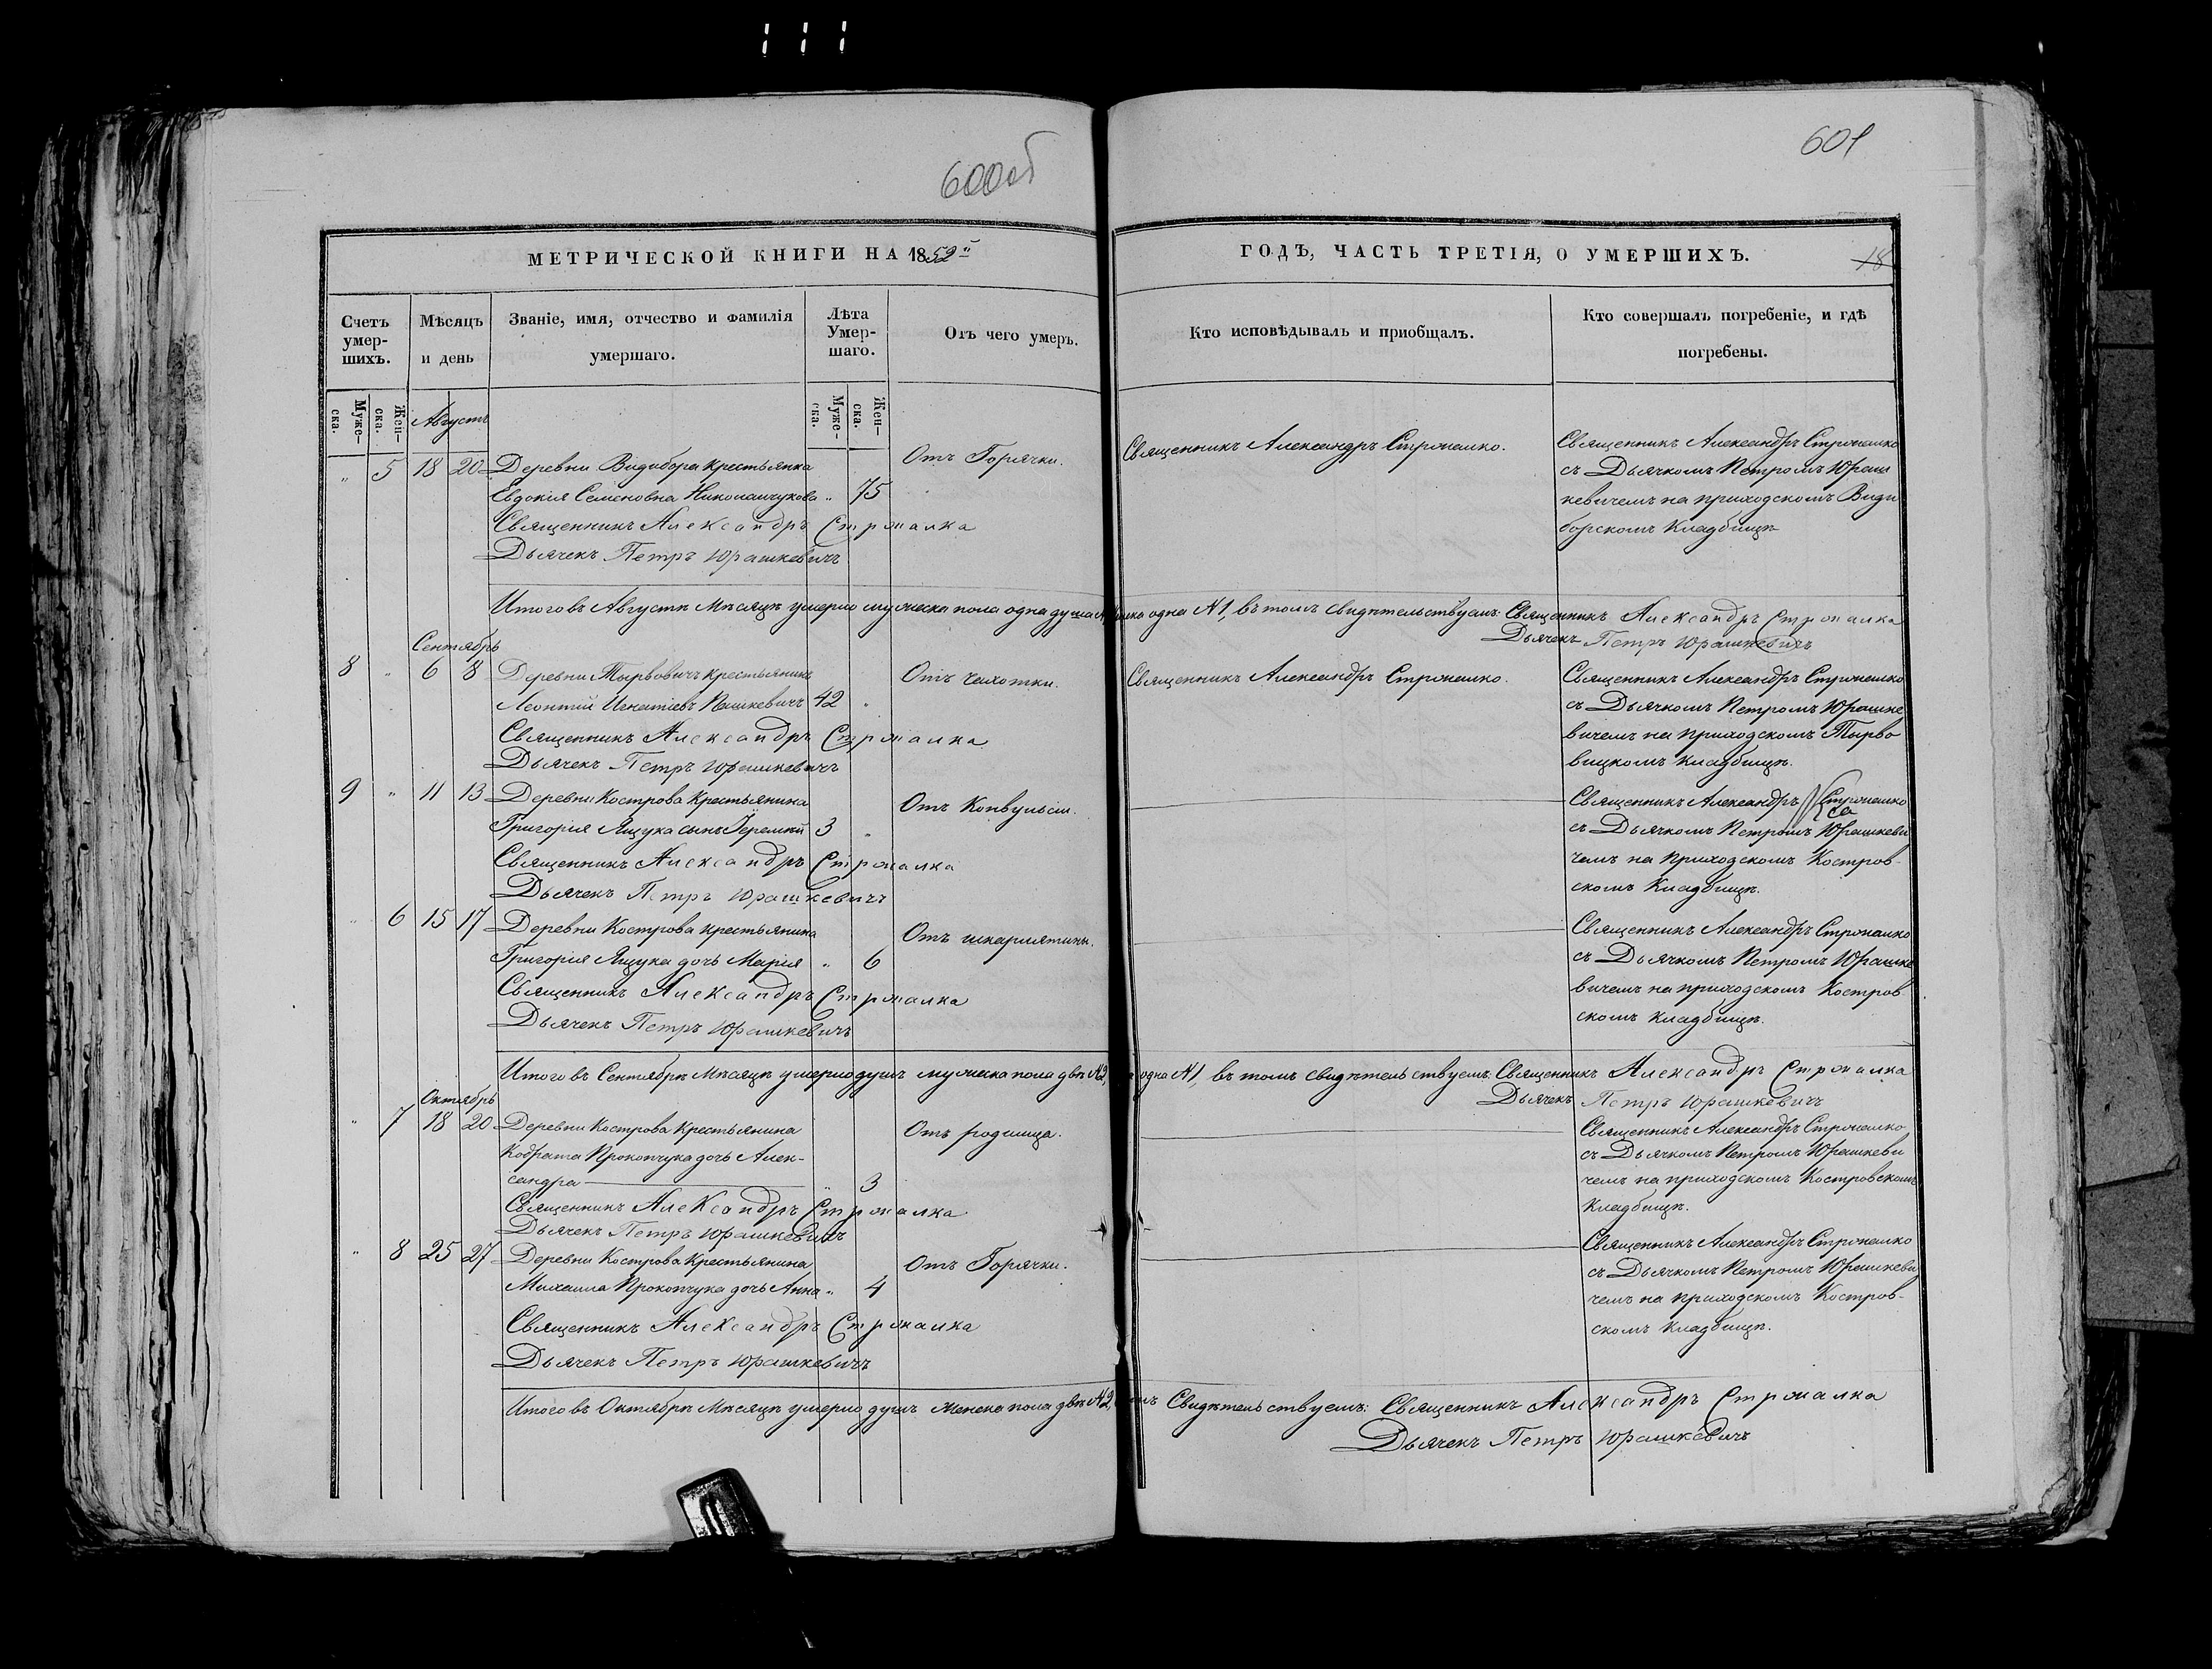 600об
601
МЕТРИЧЕСКОЙ КНИГИ НА 1852й
ГОДЪ, ЧАСТЬ ТРЕТІЯ, О УМЕРШИХЪ.
18
Счетъ умер-шихъ.
Мѣсяцъ и день
Званіе, имя, отчество и фамилія умершаго.
Лѣта Умер-шаго.
Отъ чего умеръ.
Кто исповѣдывалъ и пріобщалъ.
Кто совершалъ погребеніе, и гдѣ погребены.
Муже-ска.
Жен-ска.
Муже-ска.
Жен-ска.
Августъ
" 5 18 20 Деревни Видибора крестьянка
Евдокія Семеновна " 75
Отъ Горячки.
Священникъ Александръ
Священникъ Александръ
съ Дьячкомъ Петромъ Юраш
кевичемъ на приходскомъ Види
борскомъ Кладбищѣ
Священникъ Александръ
Дьячекъ Петръ Юрашкевичъ
Итого въ Августѣ Мѣсяцѣ умерло мужеска пола одна душа одна №1, въ томъ свидѣтельствуемъ: Священникъ Александръ
Дьячекъ Петръ Юрашкевичъ
Сентябрь
8 " 6 8 Деревни Тырвовичъ крестьянинъ
Леонтій Игнатіевъ Пашкевичъ 42 "
Отъ чахотки.
Священникъ Александръ
Священникъ Александръ
съ Дьячкомъ Петромъ Юрашке
вичемъ на приходскомъ Тырво
вицкомъ кладбищѣ.
Священникъ Александръ
Дьячекъ Петръ Юрашкевичъ
9 " 11 13 Деревни Кострова Крестьянина
Григорія Ящука сынъ 3 "
Отъ Конвульсіи.
Священникъ Александръ
съ Дьячкомъ Петромъ Юрашкеви
чемъ на приходскомъ Костров-
скомъ Кладбищѣ.
Священникъ Александръ
Дьячекъ Петръ Юрашкевичъ
" 6 15 17 Деревни Кострова крестьянина
Григорія Ящука дочь Марія " 6
Отъ шкарлятины.
Священникъ Александръ
съ Дьячкомъ Петромъ Юрашке
вичемъ на приходскомъ Костров-
скомъ кладбищѣ.
Священникъ Александръ
Дьячекъ Петръ Юрашкевичъ
Итого въ Сентябрѣ Мѣсяцѣ умерло душъ мужеска пола двѣ №2 одна №1, въ томъ свидѣтельствуемъ: Священникъ Александръ
Дьячекъ Петръ Юрашкевичъ
Октябрь
" 7 18 20 Деревни Кострова Крестьянина
Кодрата Прокопчука дочь Алек-
сандра " 3
Отъ родимца.
Священникъ Александръ
съ Дьячкомъ Петромъ Юрашкеви
чемъ на приходскомъ Костровскомъ
Кладбищѣ.
Священникъ Александръ
Дьячекъ Петръ Юрашкевичъ
" 8 25 27 Деревни Кострова Крестьянина
Михаила Прокопчука дочь Анна " 4
Отъ Горячки.
Священникъ Александръ
съ Дьячкомъ Петромъ Юрашкеви
чемъ на приходскомъ Костров-
скомъ кладбищѣ.
Священникъ Александръ
Дьячекъ Петръ Юрашкевичъ
Итого въ Октябрѣ Мѣсяцѣ умерло душъ женска пола двѣ №2, Свидѣтельствуемъ: Священникъ Александръ
Дьячекъ Петръ Юрашкевичъ